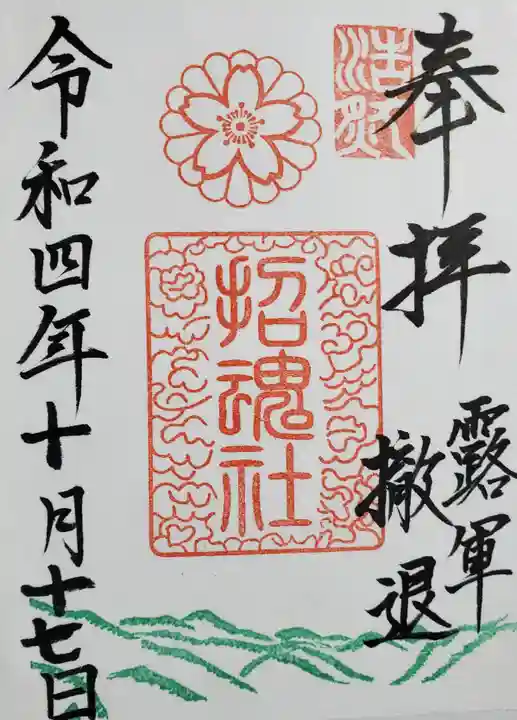 奉拝
露軍
撤退
招魂社
令和四年十月十七日